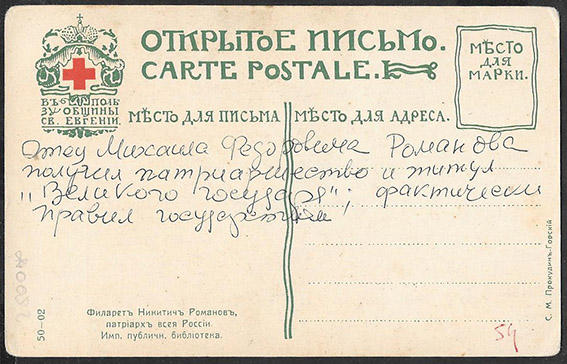 ОТКРЫТОЕ ПИСЬМО.
CARTE POSTALE.
МѢСТО
ДЛЯ
МАРКИ.
ВЪ ПОЛЬ
ЗУ ОБЩИНЫ
СВ. ЕВГЕНІИ.
МѢСТО ДЛЯ ПИСЬМА
МѢСТО ДЛЯ АДРЕСА.
Отец Михаила Федоровича Романова
получил патриаршество и титул
"Великого государя"; фактически
правил государством
Филаретъ Никитичъ Романовъ,
патріархъ всея Россіи.
Имп. публичн. библіотека.
50-02
С. М. Прокудинъ-Горскій
54